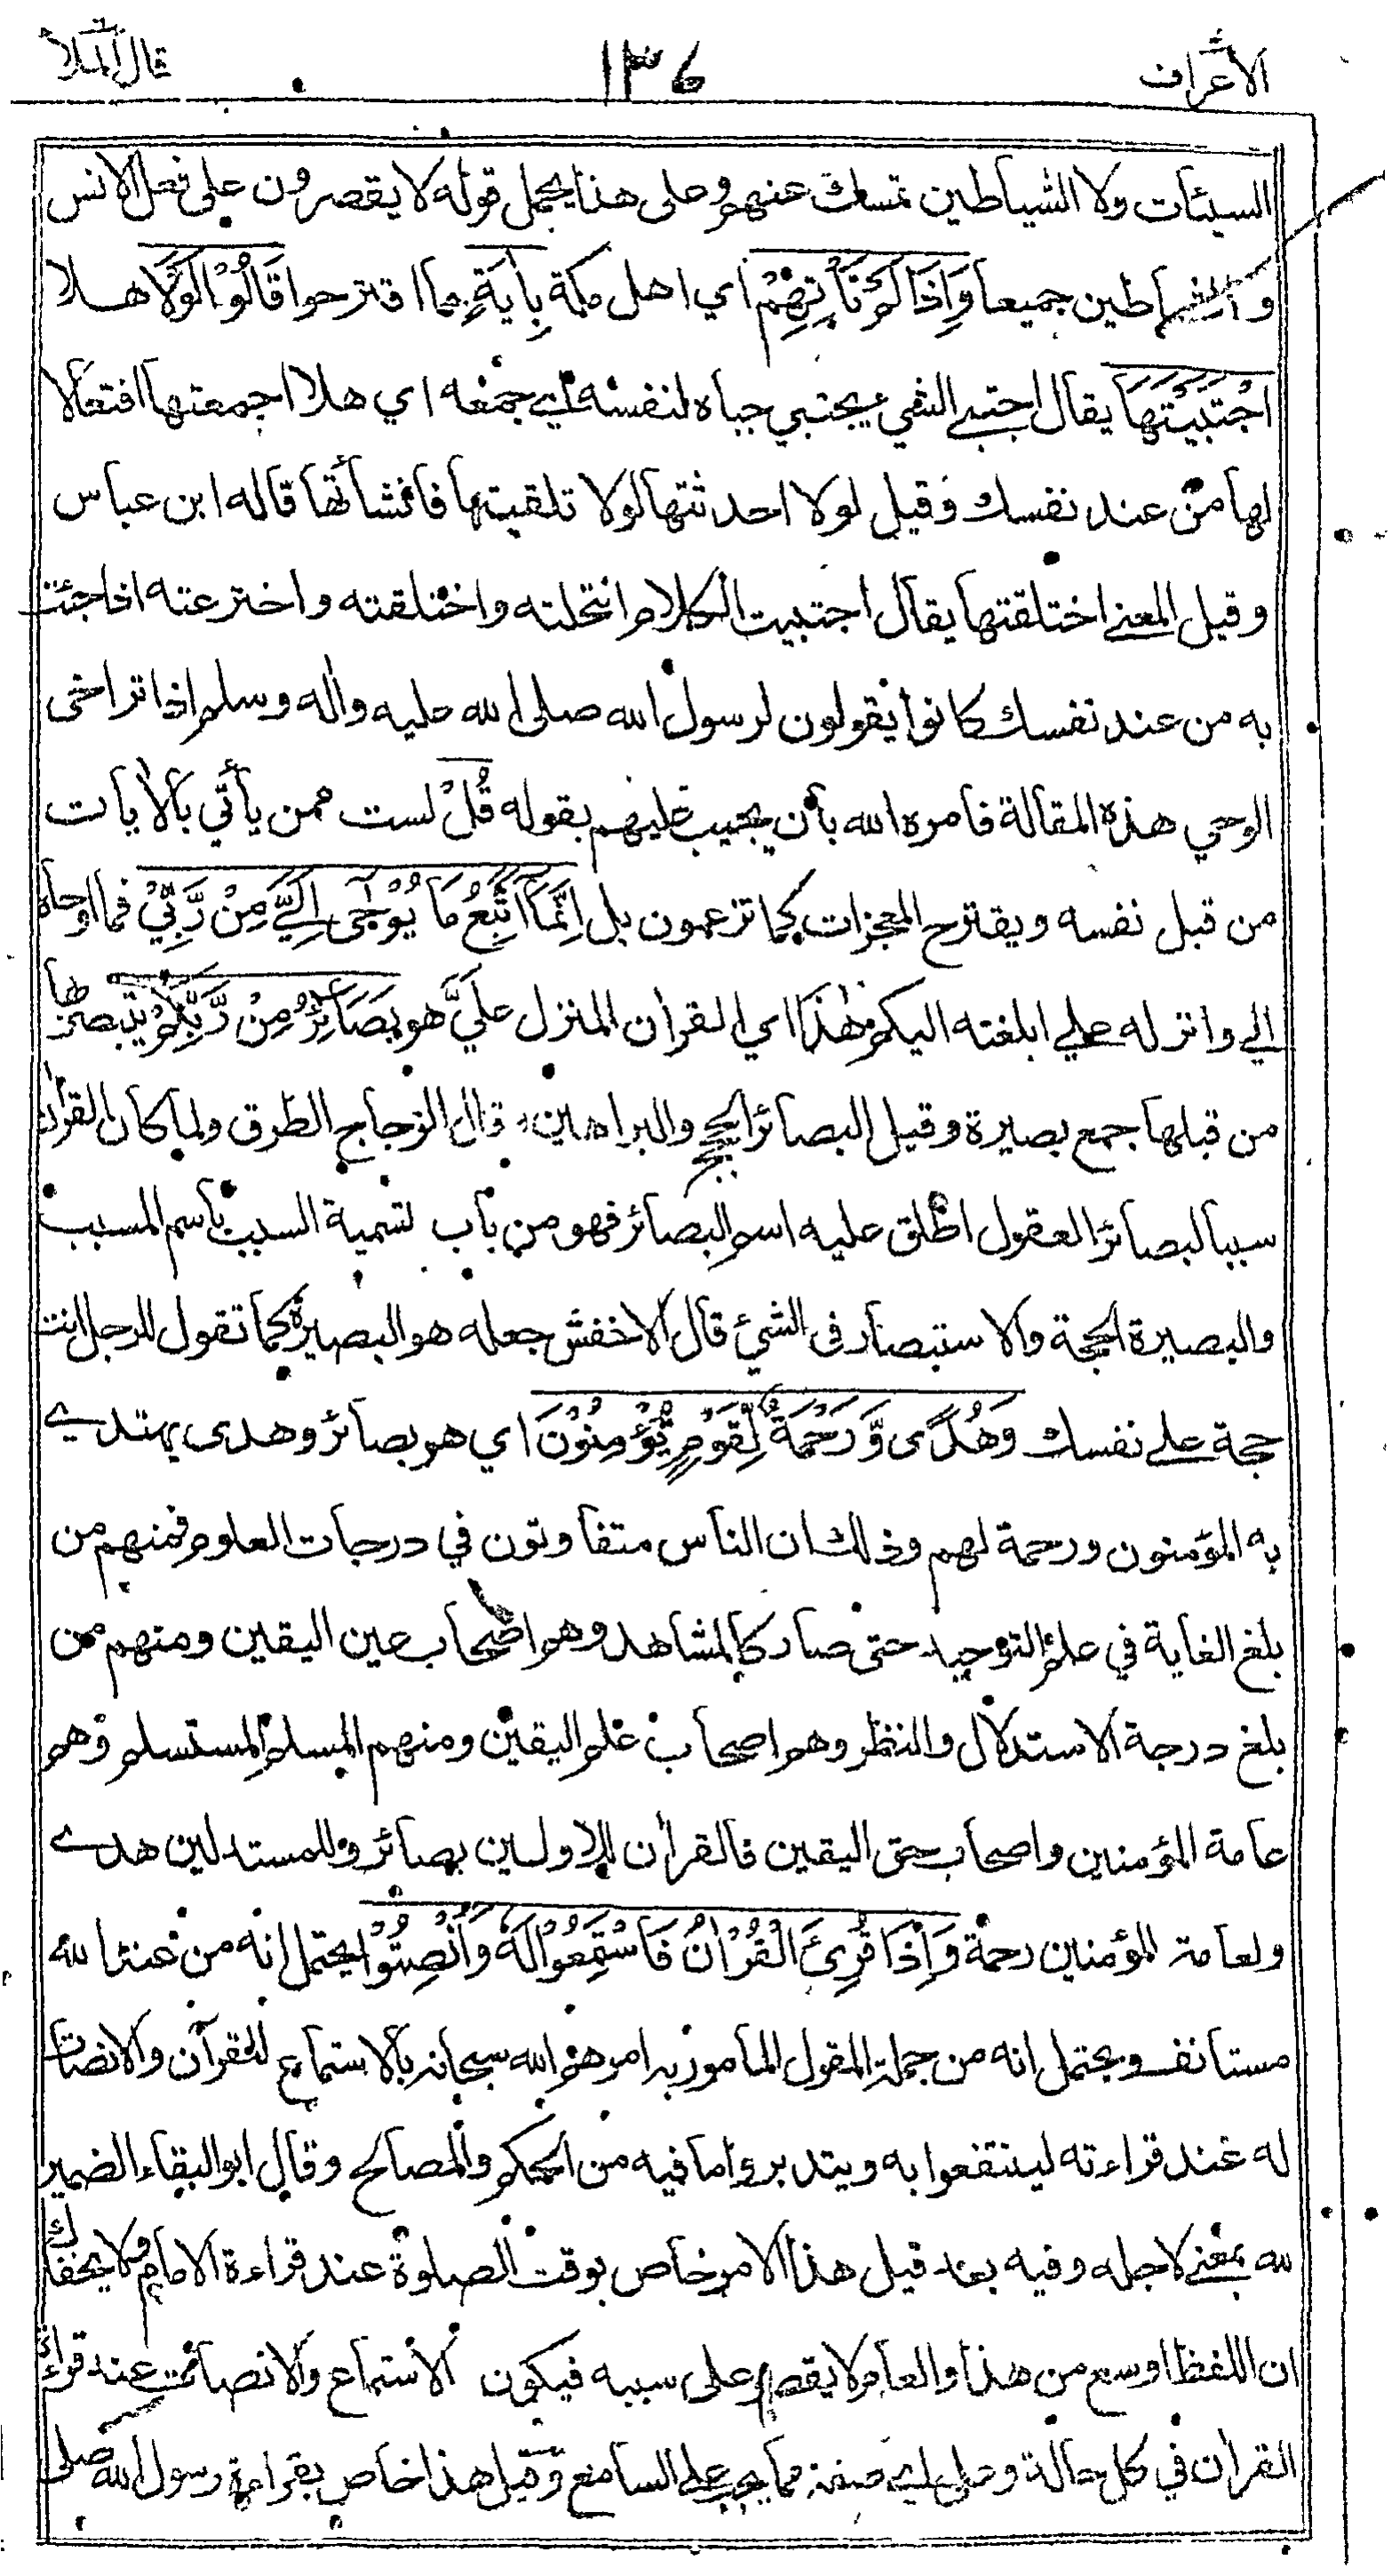 الاعراف ١٣٦ قال الملأ
السيئات ولا الشياطين تمسك عنهم وعلى هذا يحمل قوله لا يقصرون على فعل الانس
والشياطين جميعا وَاِذَا لَمْ تَأْتِهِمْ اي اهل مكة بِاٰيَةٍ مما اقترحوا قَالُوْا لَوْلَا هلا
اجْتَبَيْتَهَا يقال اجتبى الشيء يجتبي جباه لنفسه اي جمعه اي هلا اجمعتها افتعالا
لها من عند نفسك وقيل لولا احدثتها لولا تلقيتها فانشأتها قاله ابن عباس
وقيل المعنى اختلقتها يقال اجتبيت الكلام انتحلته واختلقته واخترعته اذا جئت
به من عند نفسك كانوا يقولون لرسول الله صلى الله عليه واٰله وسلم اذا تراخى
الوحي هذه المقالة فامره الله بأن يجيب عليهم بقوله قُلْ لست ممن يأتي بالاٰيات
من قبل نفسه ويقترح المعجزات كما تزعمون بل اِنَّمَا اَتَّبِعُ مَا يُوْحٰى اِلَيَّ مِنْ رَّبِّيْ فما اوحاه
الي وانزله علي ابلغته اليكم هٰذَا اي القراٰن المنزل عليَّ هو بَصَائِرُ مِنْ رَّبِّكُمْ يتبصر بها
من قبلها جمع بصيرة وقيل البصائر الحجج والبراهين، قال الزجاج الطرق ولما كان القراٰن
سببا لبصائر العقول اطلق عليه اسم البصائر فهو من باب تسمية السبب باسم المسبب
والبصيرة الحجة والاستبصار في الشيئ قال الاخفش جعله هو البصيرة كما تقول للرجل انت
حجة على نفسك وَهُدًى وَّرَحْمَةٌ لِّقَوْمٍ يُّؤْمِنُوْنَ اي هو بصائر وهدى يهتدي
به المؤمنون ورحمة لهم وذلك ان الناس متفاوتون في درجات العلوم فمنهم من
بلغ الغاية في علم التوحيد حتى صار كالمشاهد وهم اصحاب عين اليقين ومنهم من
بلغ درجة الاستدلال والنظر وهم اصحاب علم اليقين ومنهم المسلم المستسلم وهم
عامة المؤمنين واصحاب حق اليقين فالقراٰن للاولين بصائر وللمستدلين هدى
ولعامة المؤمنين رحمة وَاِذَا قُرِئَ الْقُرْاٰنُ فَاسْتَمِعُوْا لَهٗ وَاَنْصِتُوْا يحتمل انه من عند الله
مستانف ويحتمل انه من جملة المقول المأمور به امرهم الله سبحانه بالاستماع للقراٰن والانصات
له عند قراءته لينتفعوا به ويتدبروا ما فيه من الحكم والمصالح وقال ابو البقاء الضمير
لله بمعنى لاجله وفيه بعد قيل هذا الامر خاص بوقت الصلوة عند قراءة الامام ولا يخفاك
ان اللفظ اوسع من هذا والعام لا يقصر على سببه فيكون الاستماع والانصات عند قراءة
القراٰن في كل حالة وعلى اي صفة مما يجب على السامع وقيل هذا خاص بقراءة رسول الله صلى